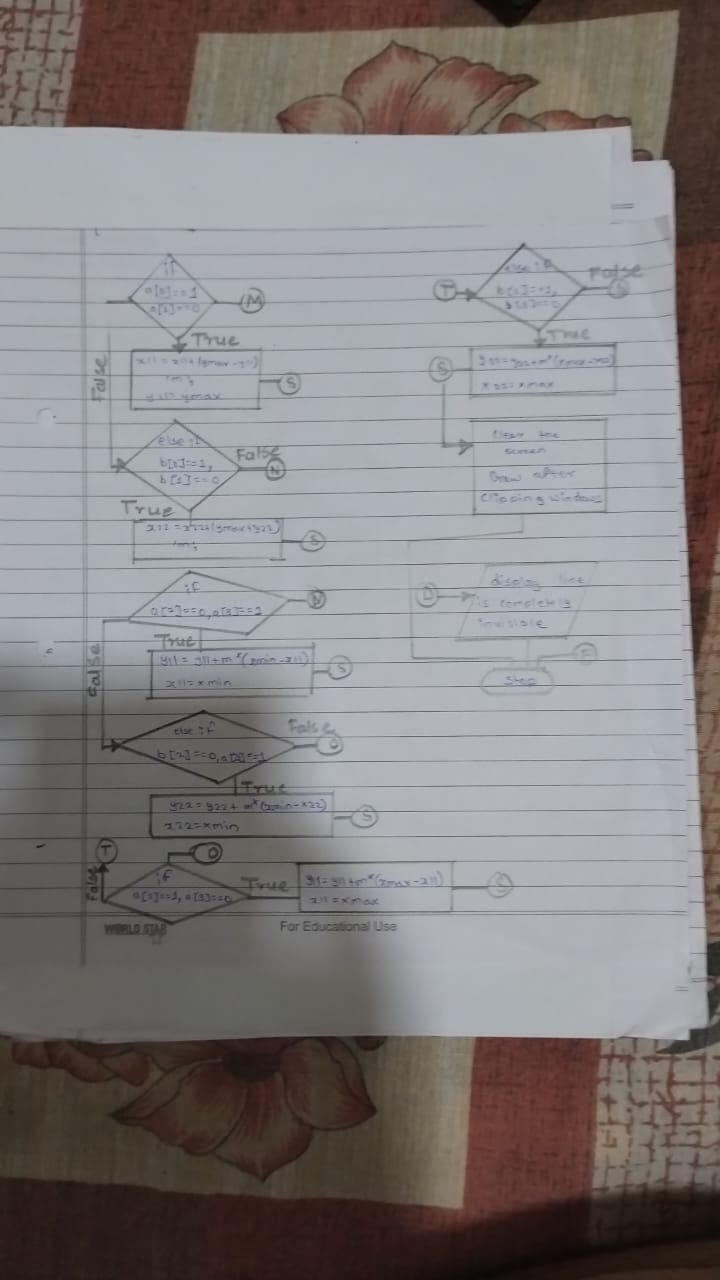 if
a[0]==1
a[1]==0
M
True
x11 = x11+(ymax-y11)
/m;
y11=ymax
S
False
else if
b[0]==1,
b[1]==0
False
N
True
x22 = x22+(ymax+y22)
/m;
S
if
a[2]==0,a[3]==1
N
True
y11 = y11+m*(xmin-x11)
x11=xmin
S
False
else if
b[2]==0,a[3]==1
False
True
y22=y22+m*(xmin-x22)
x22=xmin
S
T
O
False
if
a[2]==1, a[3]==0
True
y11=y11+m*(xmax-x11)
x11=xmax
S
T
else if
False
True
S
x22=xmax
Clear the
screen
Draw after
Clipping windows
D
display line
is completely
invisible
Stop
WORLD STAR
For Educational Use